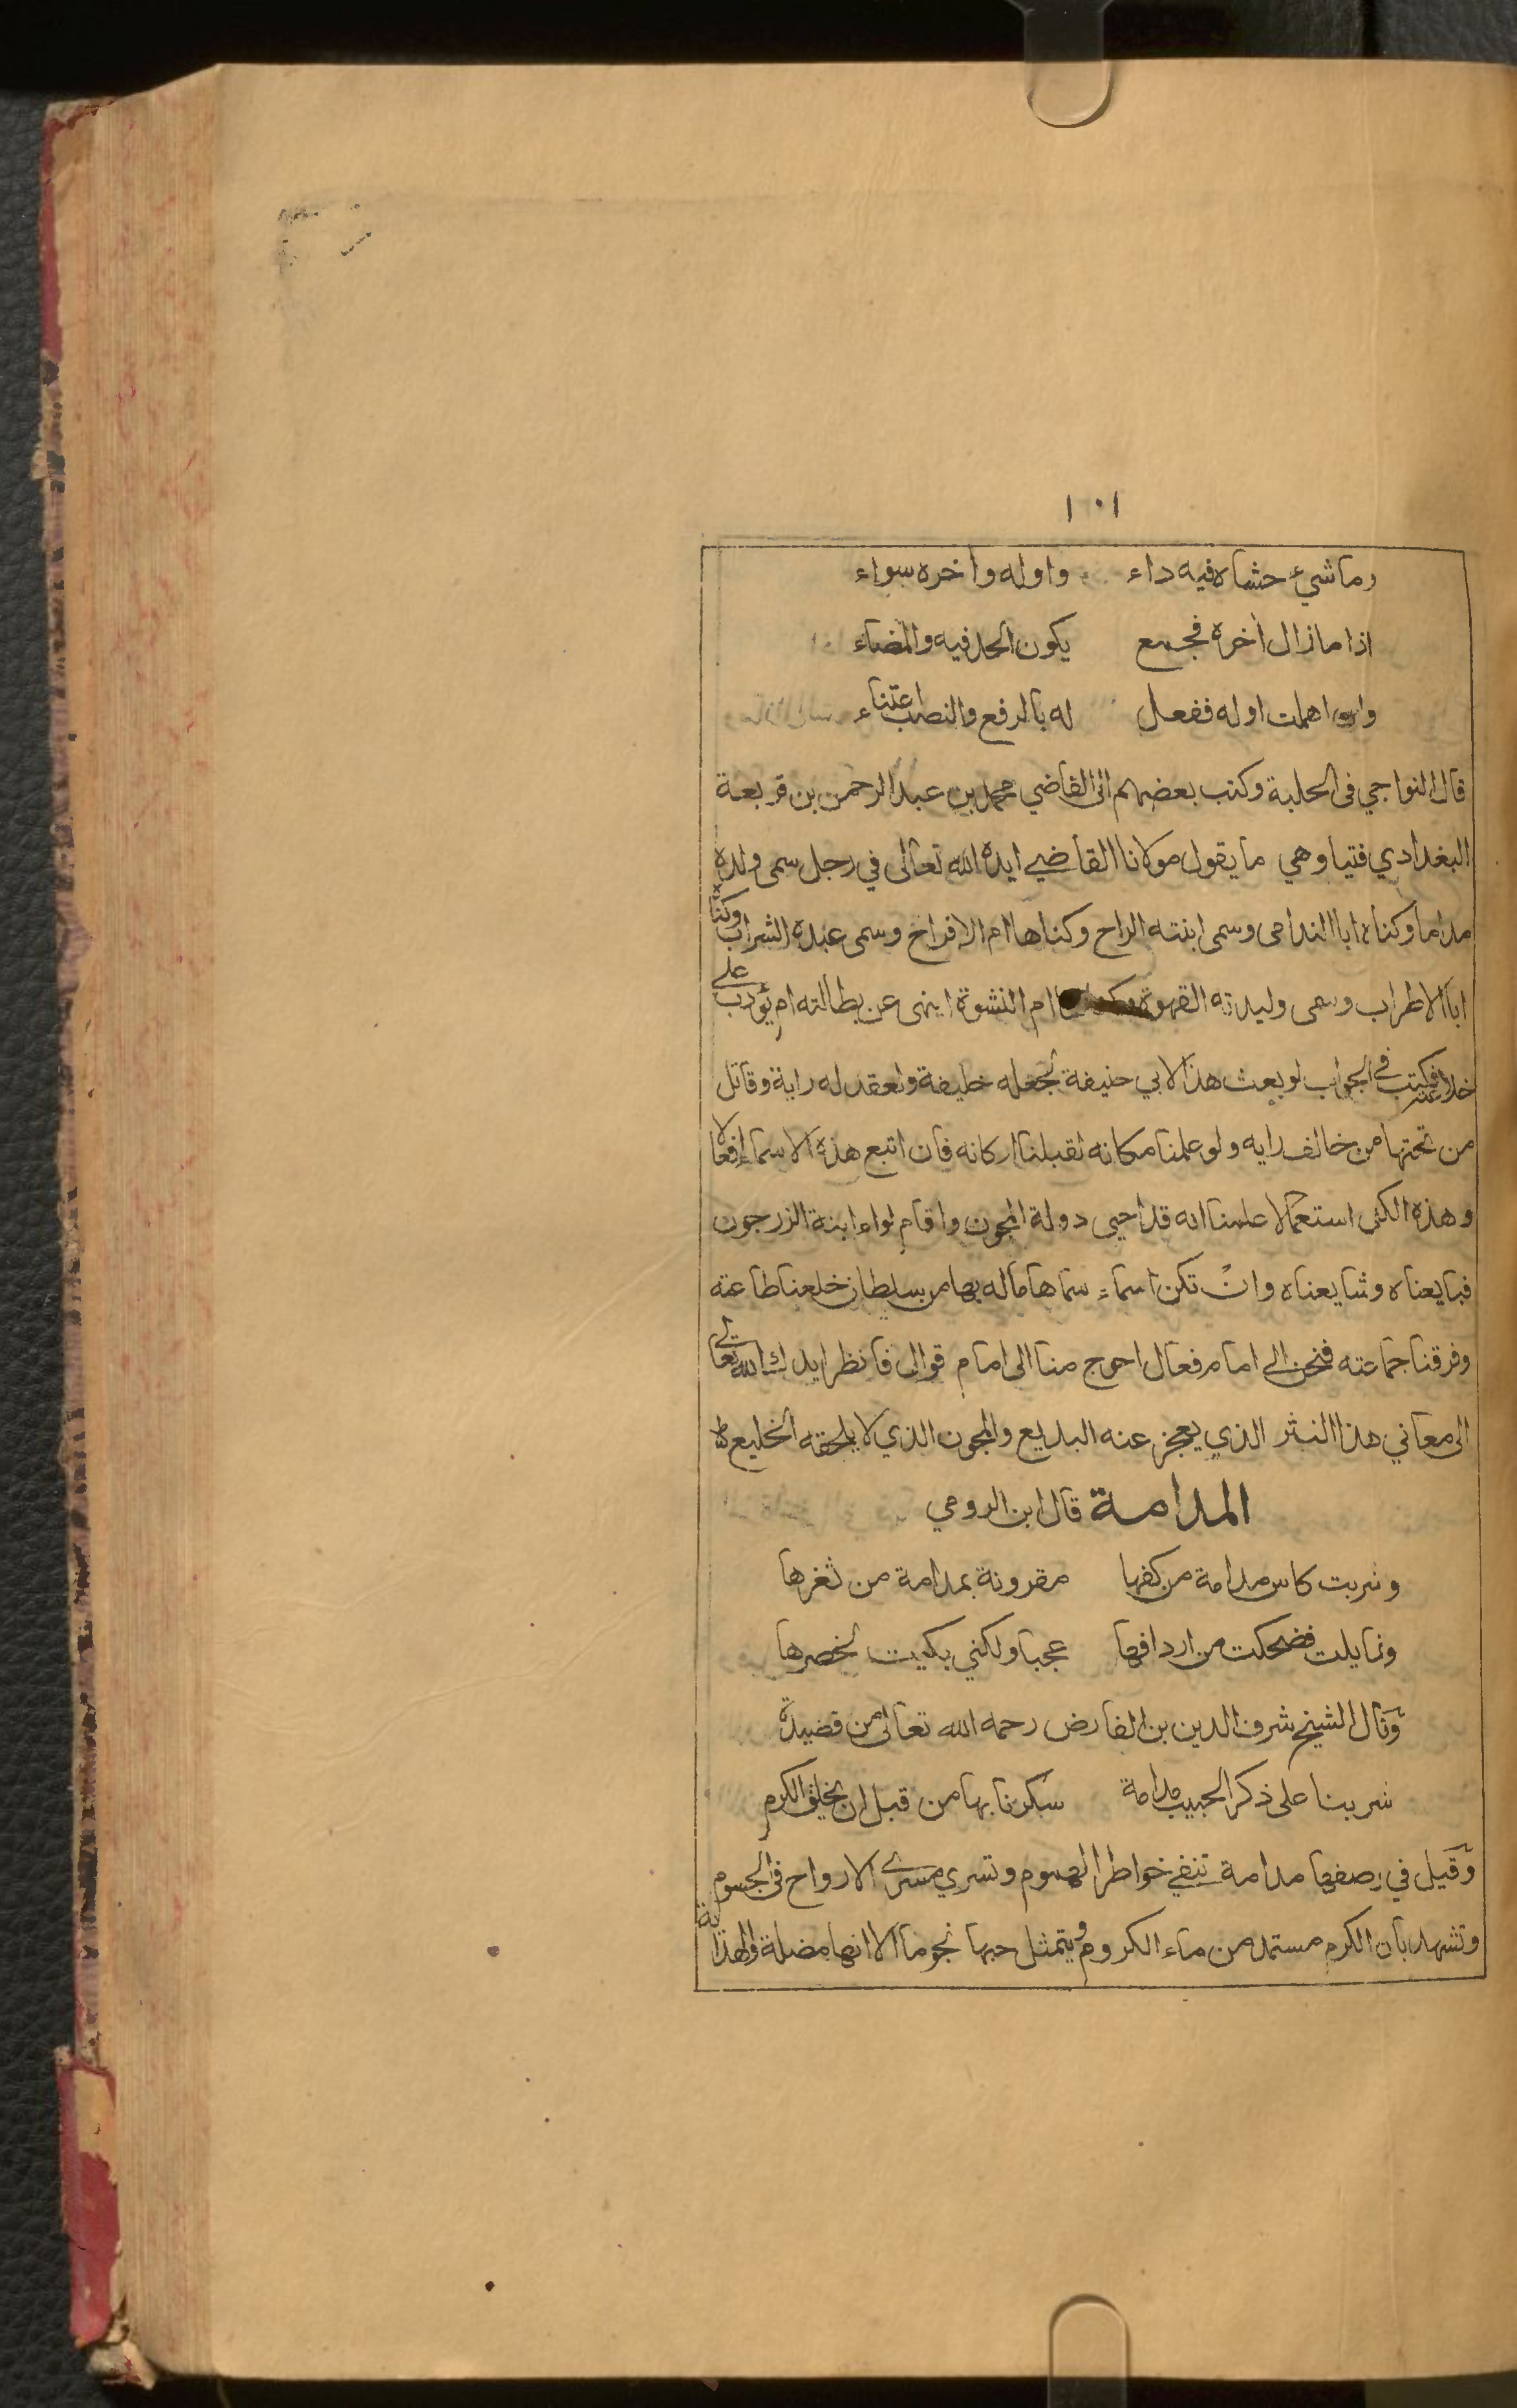 ١٠١
وما شيء حشاه فيه داء واوله واخره سواء
اذا ما زال اخره فجمع يكون الحد فيه والمضاء
وان اهملت اوله ففعل له بالرفع والنصب اعتناء
قال النواجي في الحلبة وكتب بعضهم الى القاضي محمد بن عبد الرحمن بن قريعة
البغدادي فتيا وهي ما يقول مولانا القاضي ايده الله تعالى في رجل سمى ولده
مداما وكناه ابا الندامى وسمى ابنته الراح وكناها ام الافراح وسمى عبده الشراب وكناه
ابا الاطراب وسمى وليدته القهوة ام النشوة اينهى عن بطالته ام يؤدب على
خلاعته فكتب في الجواب لو بعث هذا لابي حنيفة لجعله خليفة ولعقد له راية وقاتل
من تحتها من خالف رايه ولو علمنا مكانه لقبلنا اركانه فان اتبع هذه الاسماء افعالا
وهذه الكنى استعمالا علمنا انه قد احيى دولة المجون واقام لواء ابنة الزرجون
فبايعناه وشايعناه وان تكن اسماء سماها ما له بها من سلطان خلعنا طاعته
وفرقنا جماعته فنحن الى امام فعال احوج منا الى امام قوالى فانظر ايدك الله تعالى
الى معاني هذا النثر الذي يعجز عنه البديع والمجون الذي لا يلحقه الخليع
المدامة قال ابن الرومي
وشربت كاس مدامة من كفها مقرونة بمدامة من ثغرها
وتمايلت فضحكت من اردافها عجبا ولكني بكيت لخصرها
وقال الشيخ شرف الدين بن الفارض رحمه الله تعالى من قصيدة
شربنا على ذكر الحبيب مدامة سكرنا بها من قبل ان يخلق الكرم
وقيل في وصفها مدامة تنفي خواطر الهموم وتسري مسرى الارواح في الجسوم
وتشهد بان الكرم مستمد من ماء الكروم ويتمثل حبها نجوما الا انها مضلة والهداية